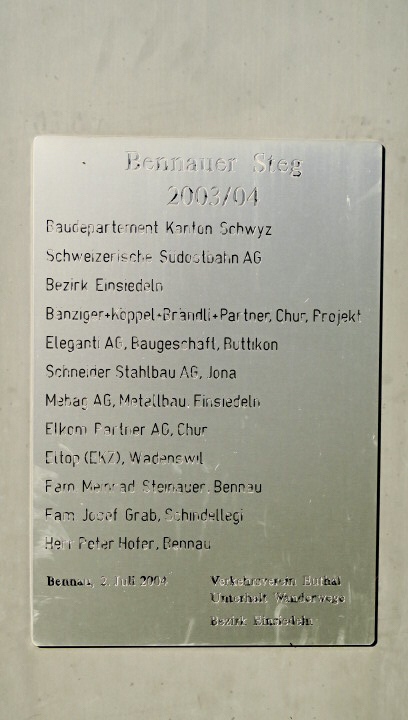 Bennauer Steg
2003/04
Baudepartement Kanton Schwyz
Schweizerische Südostbahn AG
Bezirk Einsiedeln
Bänziger+Köppel+Brändli+Partner, Chur, Projekt
Eleganti AG, Baugeschäft, Ruttikon
Schneider Stahlbau AG, Jona
Mebag AG, Metallbau, Einsiedeln
Elkom Partner AG, Chur
Eltop (EKZ), Wädenswil
Fam Meinrad Steinauer, Bennau
Fam Josef Grab, Schindellegi
Herr Peter Hofer, Bennau
Bennau, 2. Juli 2004
Verkehrsverein Euthal
Unterhalt Wanderwege
Bezirk Einsiedeln